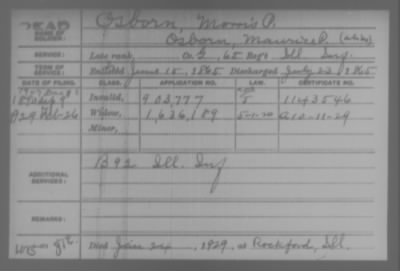 NAME OF SOLDIER: Osborn, Morris P.
Osborn, Maurice P. (alias)
SERVICE: Late rank, Co. G, 65 Reg't Ill Inf.
TERM OF SERVICE: Enlisted 15, 1865 Discharged July 22, 1865
DATE OF FILING. CLASS. APPLICATION NO. LAW. CERTIFICATE NO.
1890 Invalid, 923,777 1143546
1929 Feb-26 Widow, 1,636,189 5-1-20 A10-11-29
Minor,
ADDITIONAL SERVICES: B 92 Ill. Inf
REMARKS:
Died Jan 24, 1929, at Rockford, Ill.